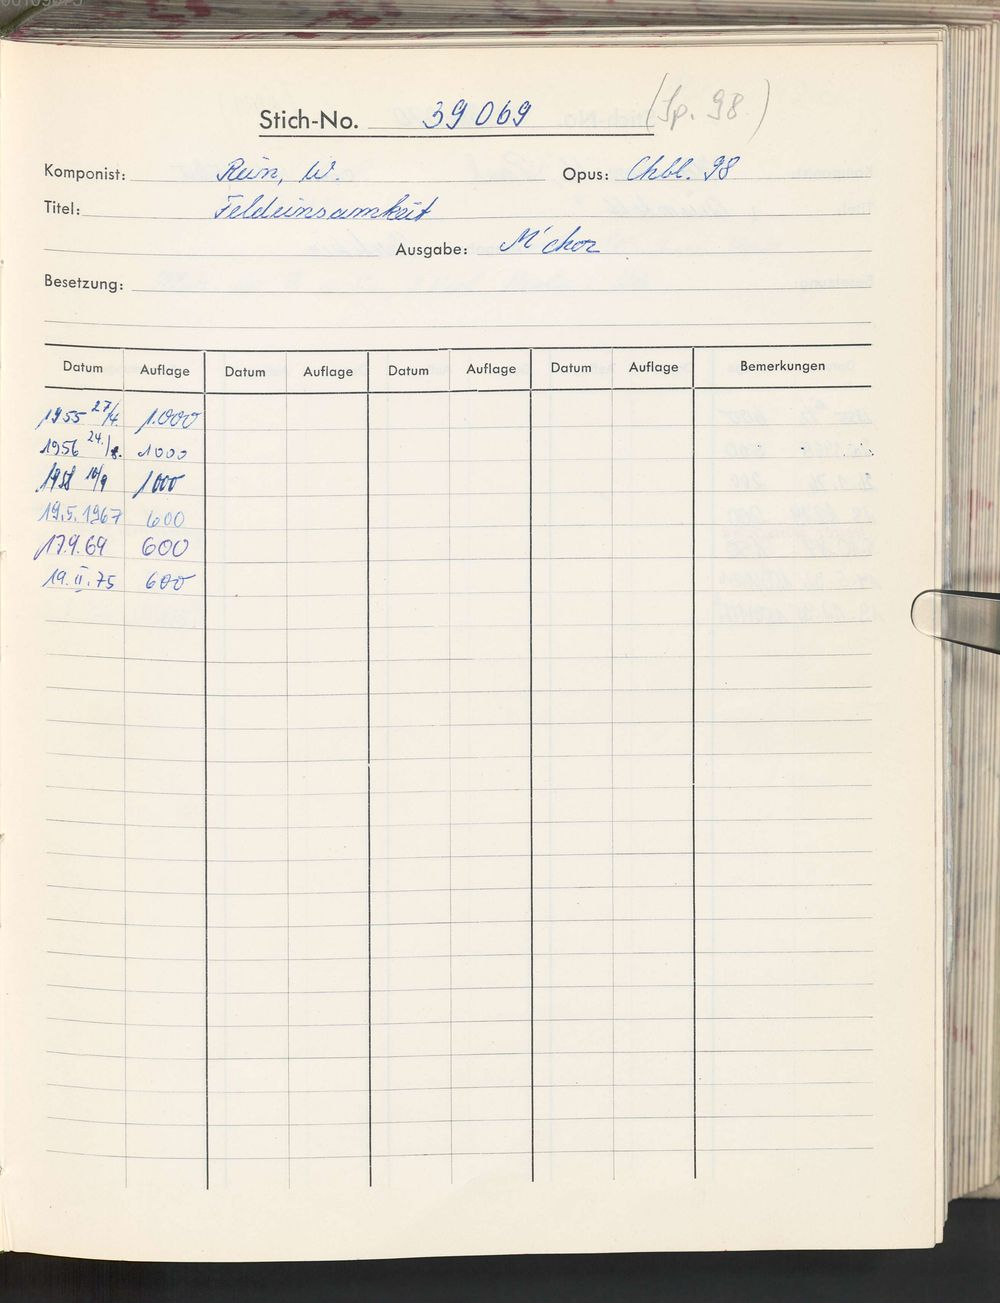 Stich-No. 39069 (Sp. 98)
Komponist: Rein, W. Opus: Chbl. 98
Titel: Feldeinsamkeit
Ausgabe: M'chor
Besetzung:
Datum Auflage Datum Auflage Datum Auflage Datum Auflage Bemerkungen
1955 27/4. 1.000
1956 24./8. 1000
1958 10/9 1000
19.5.1967 600
17.9.69 600
19.II.75 600